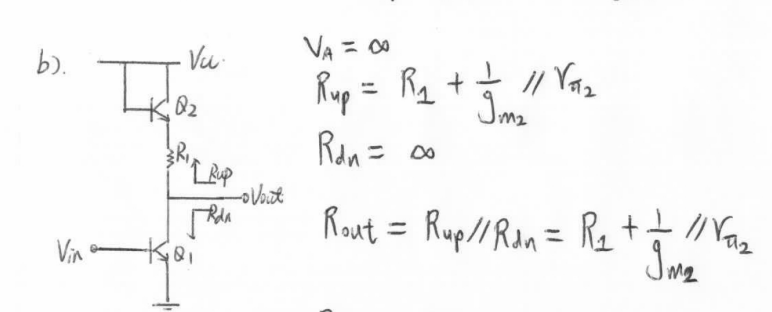 b).
Vcc
Q2
R1
Rup
Vout
Rdn
Vin
Q1
VA = ∞
Rup = R1 + 1/gm2 // rπ2
Rdn = ∞
Rout = Rup//Rdn = R1 + 1/gm2 // rπ2